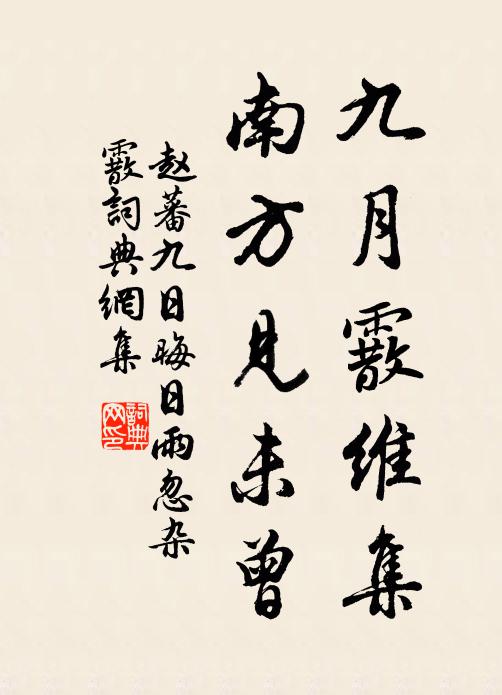 九月霰維集
南方見未曾
赵蕃九日晦日雨忽杂
霰詞典網集
詞典网印